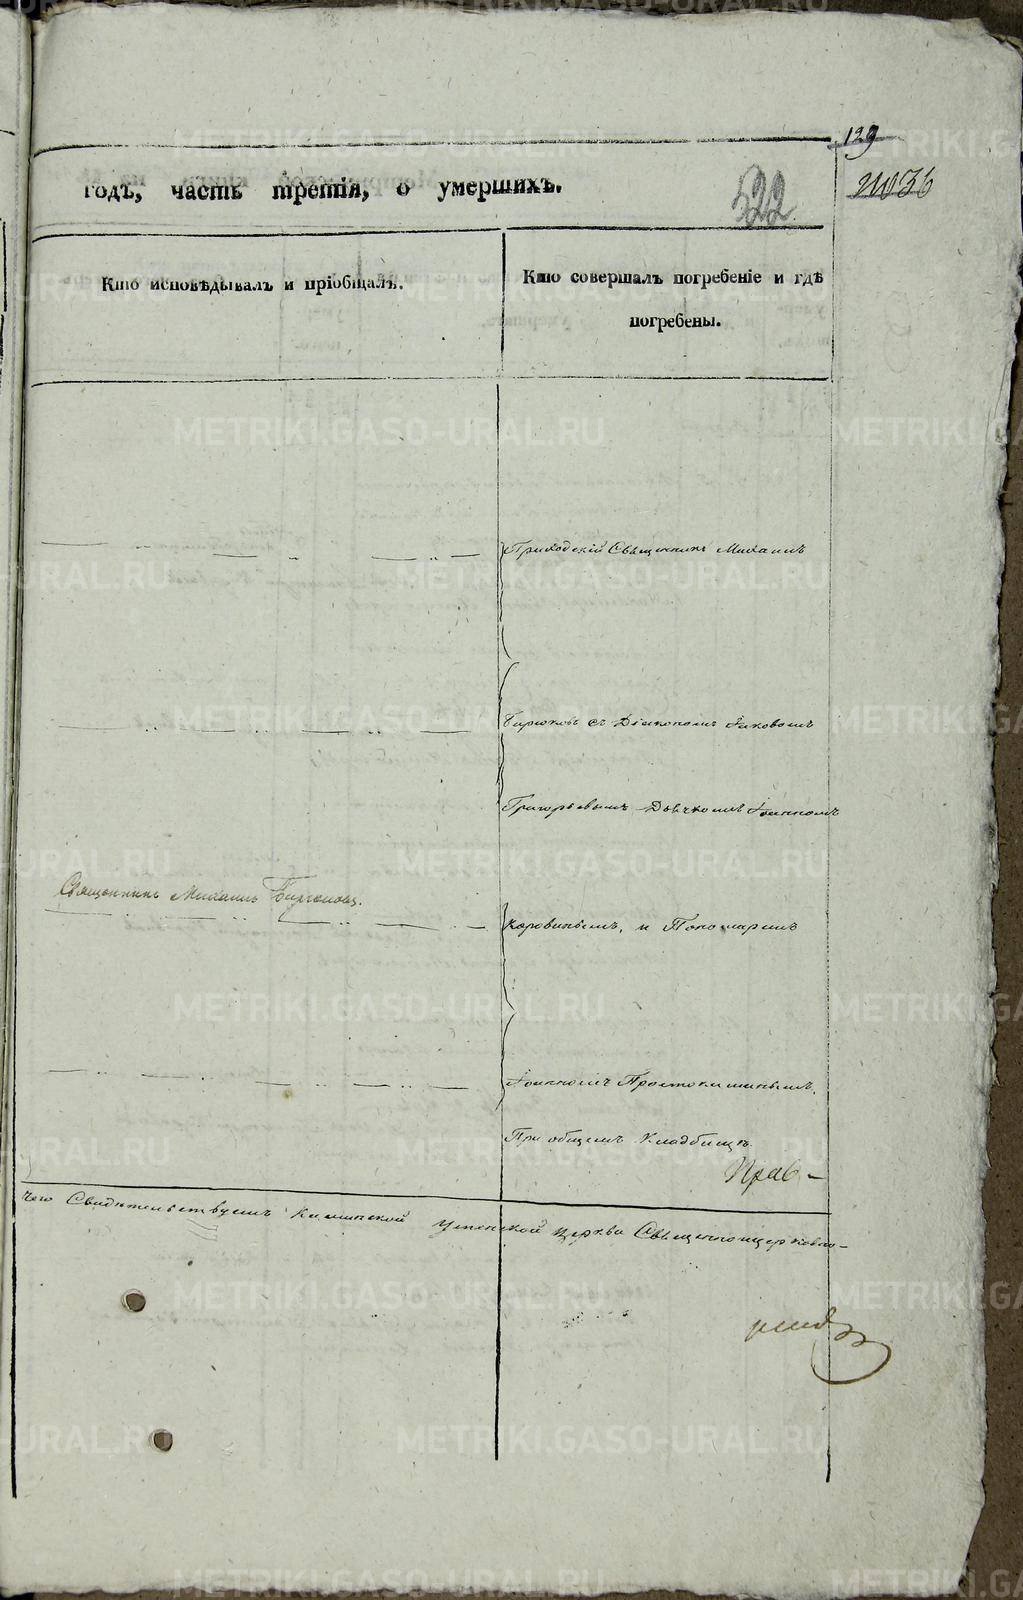 129
годъ, часть третія, о умершихъ.
522
Кто исповѣдывалъ и пріобщалъ.
Кто совершалъ погребеніе и гдѣ
погребены.
Приходскій Священникъ Михаилъ
Бирюковъ съ Діакономъ Іаковомъ
Григорьевымъ Дьячкомъ Іоанномъ
Священникъ Михаилъ Бирюковъ.
Коровинымъ, и Пономаремъ
Іоанномъ Простокишинымъ.
При общемъ Кладбищѣ.
Прав-
чего Свидѣтельствуемъ Успенской церкви Священноцерковно-
METRIKI.GASO-URAL.RU